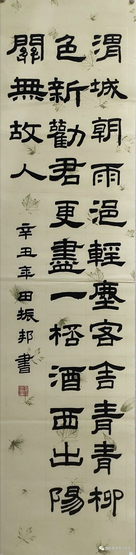 渭城朝雨浥輕塵客舍青青柳
色新勸君更盡一杯酒西出陽
關無故人
辛丑年田振邦書